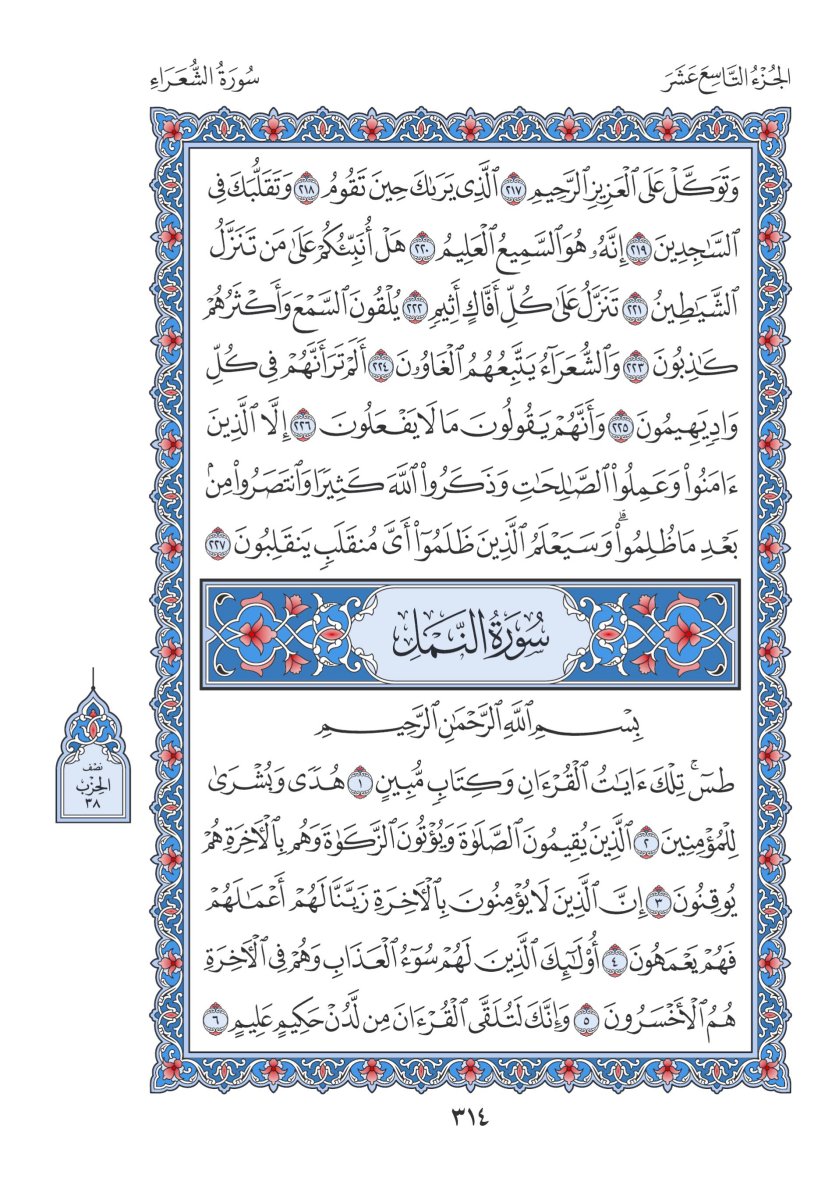 الجُزْءُ التَّاسِعَ عَشَرَ
سُورَةُ الشُّعَرَاءِ
وَتَوَكَّلْ عَلَى ٱلْعَزِيزِ ٱلرَّحِيمِ ٢١٧ ٱلَّذِى يَرَىٰكَ حِينَ تَقُومُ ٢١٨ وَتَقَلُّبَكَ فِى
ٱلسَّٰجِدِينَ ٢١٩ إِنَّهُۥ هُوَ ٱلسَّمِيعُ ٱلْعَلِيمُ ٢٢٠ هَلْ أُنَبِّئُكُمْ عَلَىٰ مَن تَنَزَّلُ
ٱلشَّيَٰطِينُ ٢٢١ تَنَزَّلُ عَلَىٰ كُلِّ أَفَّاكٍ أَثِيمٍ ٢٢٢ يُلْقُونَ ٱلسَّمْعَ وَأَكْثَرُهُمْ
كَٰذِبُونَ ٢٢٣ وَٱلشُّعَرَآءُ يَتَّبِعُهُمُ ٱلْغَاوُۥنَ ٢٢٤ أَلَمْ تَرَ أَنَّهُمْ فِى كُلِّ
وَادٍ يَهِيمُونَ ٢٢٥ وَأَنَّهُمْ يَقُولُونَ مَا لَا يَفْعَلُونَ ٢٢٦ إِلَّا ٱلَّذِينَ
ءَامَنُوا۟ وَعَمِلُوا۟ ٱلصَّٰلِحَٰتِ وَذَكَرُوا۟ ٱللَّهَ كَثِيرًا وَٱنتَصَرُوا۟ مِنۢ
بَعْدِ مَا ظُلِمُوا۟ ۗ وَسَيَعْلَمُ ٱلَّذِينَ ظَلَمُوٓا۟ أَىَّ مُنقَلَبٍ يَنقَلِبُونَ ٢٢٧
سُورَةُ النَّمْلِ
بِسْمِ ٱللَّهِ ٱلرَّحْمَٰنِ ٱلرَّحِيمِ
طسٓ ۚ تِلْكَ ءَايَٰتُ ٱلْقُرْءَانِ وَكِتَابٍ مُّبِينٍ ١ هُدًى وَبُشْرَىٰ
لِلْمُؤْمِنِينَ ٢ ٱلَّذِينَ يُقِيمُونَ ٱلصَّلَوٰةَ وَيُؤْتُونَ ٱلزَّكَوٰةَ وَهُم بِٱلْءَاخِرَةِ هُمْ
يُوقِنُونَ ٣ إِنَّ ٱلَّذِينَ لَا يُؤْمِنُونَ بِٱلْءَاخِرَةِ زَيَّنَّا لَهُمْ أَعْمَٰلَهُمْ
فَهُمْ يَعْمَهُونَ ٤ أُو۟لَٰٓئِكَ ٱلَّذِينَ لَهُمْ سُوٓءُ ٱلْعَذَابِ وَهُمْ فِى ٱلْءَاخِرَةِ
هُمُ ٱلْأَخْسَرُونَ ٥ وَإِنَّكَ لَتُلَقَّى ٱلْقُرْءَانَ مِن لَّدُنْ حَكِيمٍ عَلِيمٍ ٦
نصف
الحزب
٣٨
٣١٤